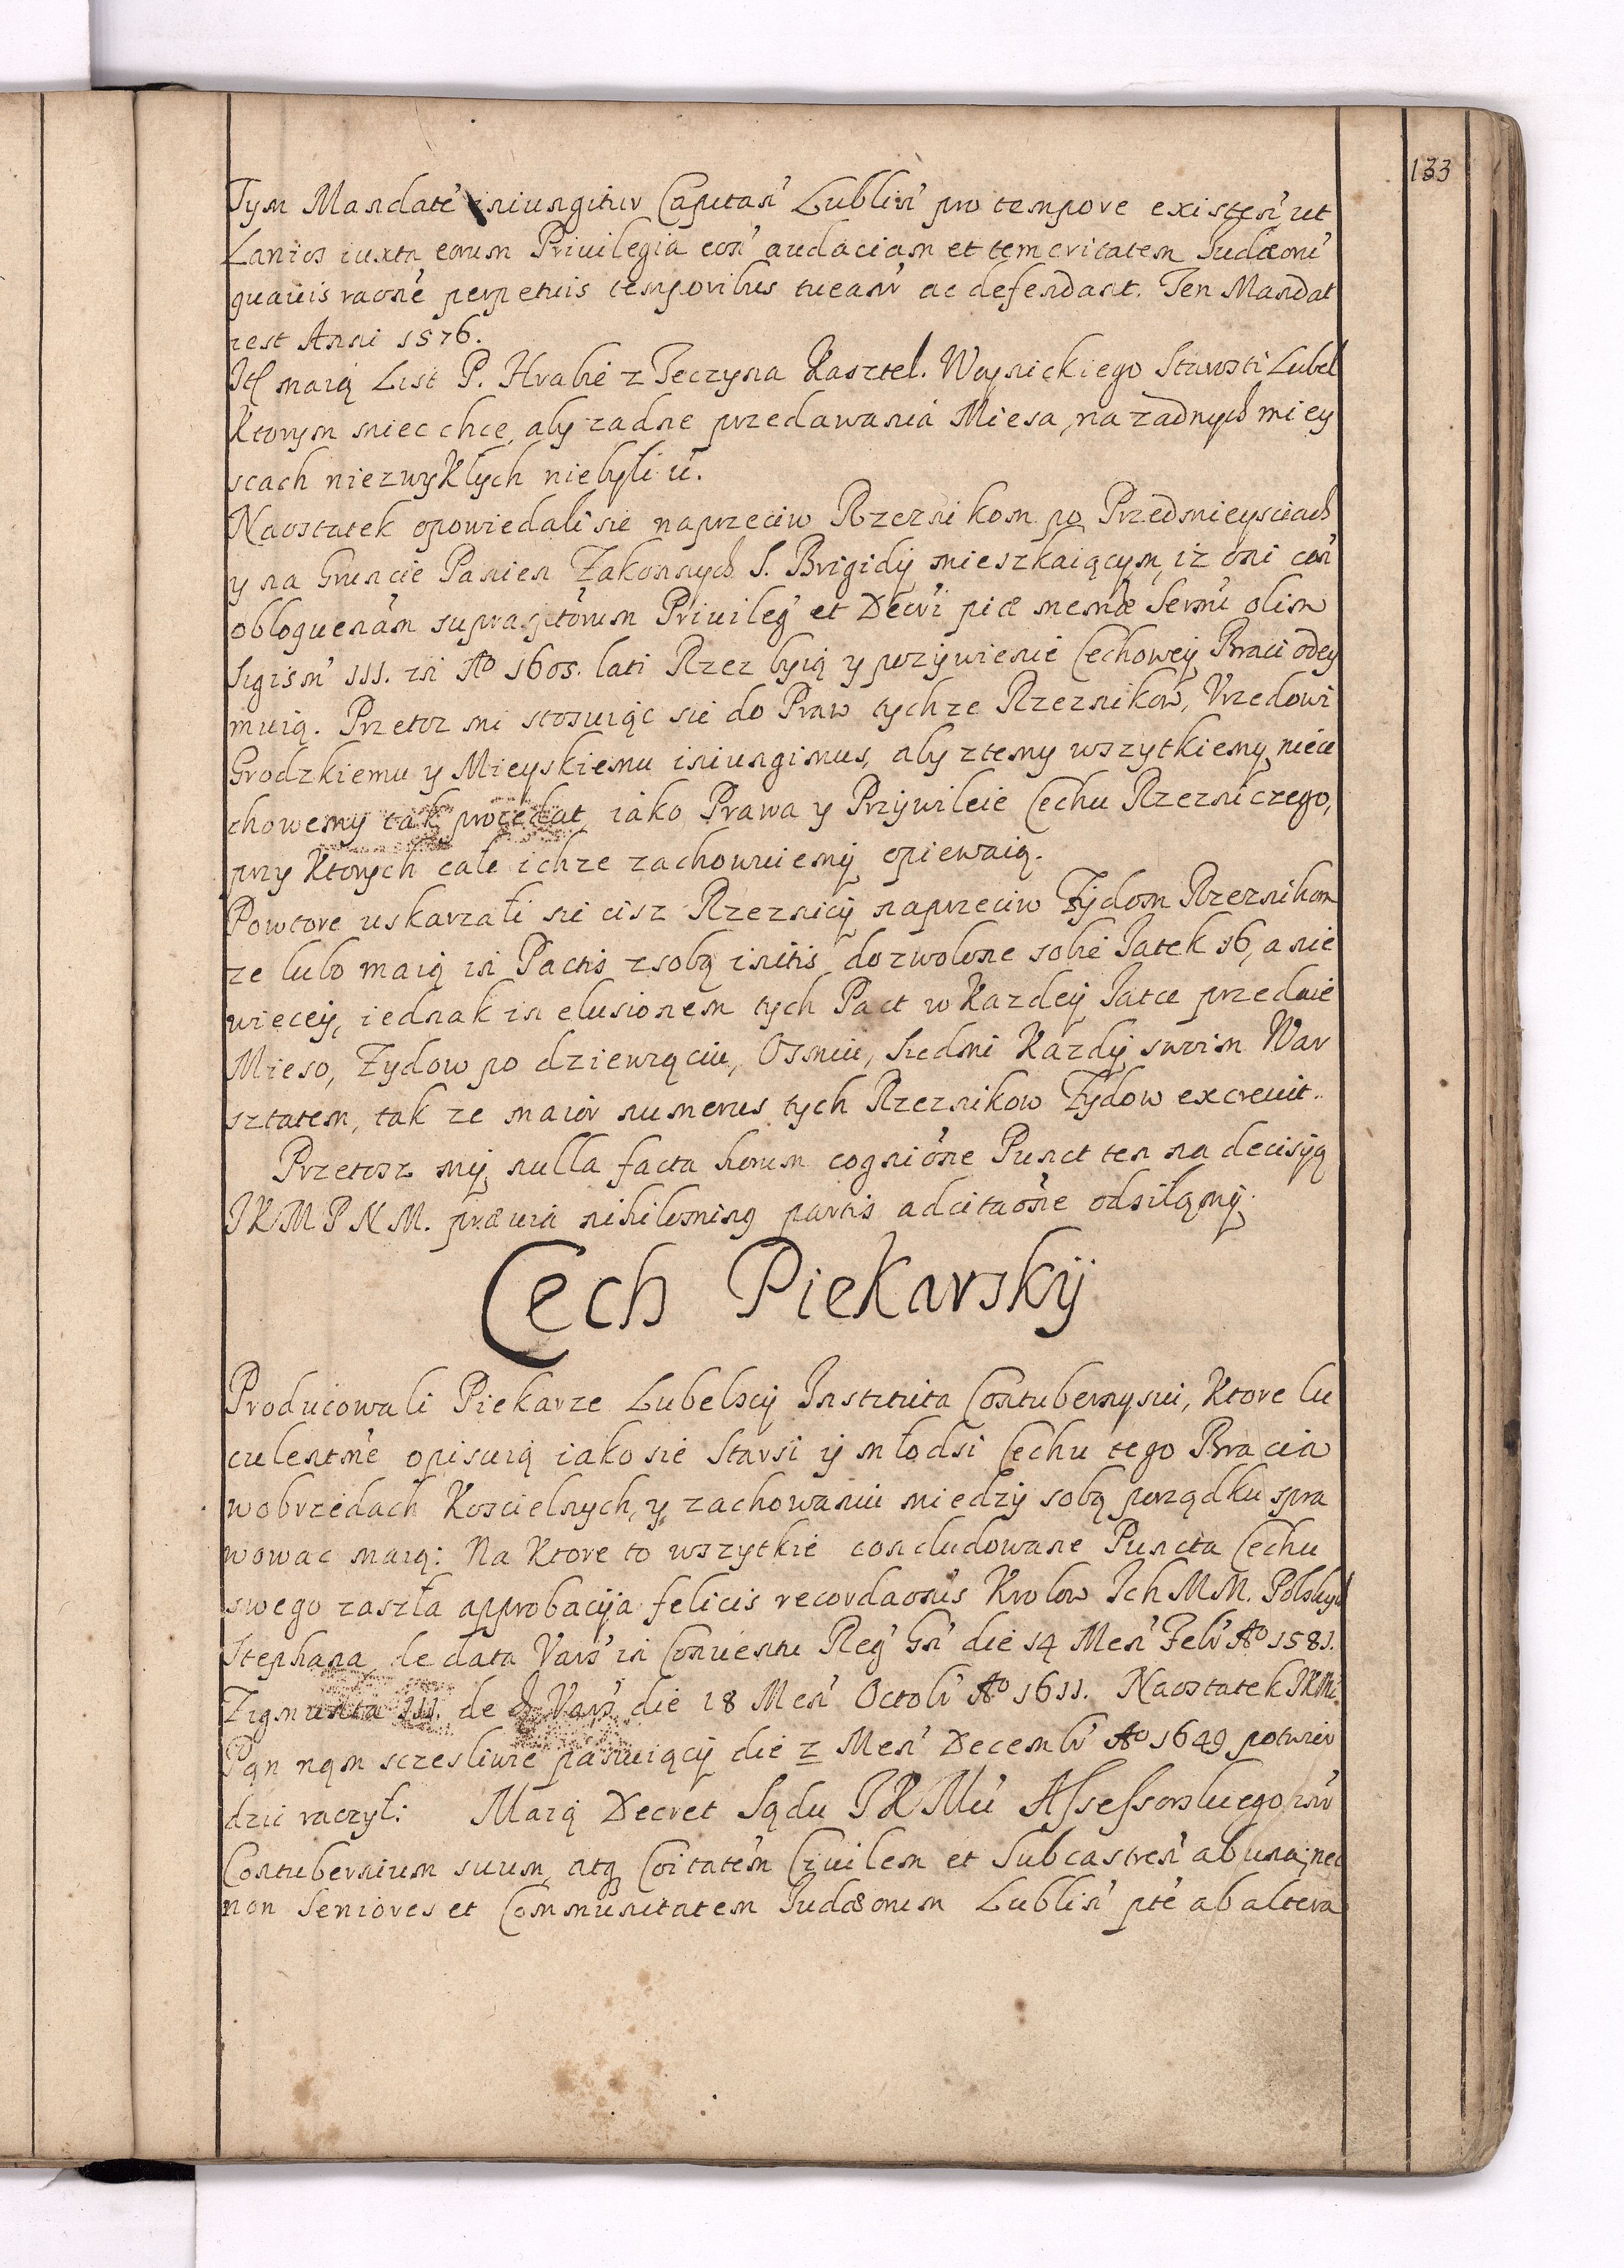 133
Tym Mandatē iniungitur Capitan̄ Lublin̄ pro tempore existen̄ ut
Lanios iuxta eorum Priuilegia con̄ audaciam et temeritatem Judæorū
quauis raōne perpetuis temporibus tuean̄r ac defendant. Ten Mandat
iest Anni 1576.
maią List P. Hrabie z Teczyna Kasztel. Woynickiego Starosti Lubel
Ktorym miec chce, aby zadne przedawania Miesa, na zadnych miey
scach niezwykłych niebyli
Naostatek opowiedali sie naprzeciw Rzeznikom po Przedmieysciach
y na Gruncie Panien Zakonnych S. Brigidy mieszkaiącym, iz oni
supra Priuileḡ et Decr̄i piæ mem̄æ Serm̄i olim
Sigism̄ III. in Ao 1605. lati Rzez biją y pozywienie Cechowey Braci odey
muią. Przetoz mi stosuiąc sie do Praw tychze Rzeznikow, Vrzedowi
Grodzkiemu y Mieyskiemu iniungimus, aby ztemy wszytkiemy niece
chowemy tak iako Prawa y Przywileie Cechu Rzezniczego,
przy Ktorych cale ichze zachowuiemy opiewaią.
Powtore uskarzali sie cisz Rzeznicy naprzeciw Zydom Rzeznikom
ze lubo maią in Pactis zsobą initis dozwolone sobie Jatek 16, a nie
więcey, iednak in elusionem tych Pact w Kazdey Jatce przedaie
Mieso, Zydow po dziewiąciu, Osmiu, Siedmi Kazdy swoim War
sztatem, tak ze maior numerus tych Rzeznikow Zydow excreuit.
Przetosz my nulla facta horum cogniōne Punct ten na decisyą
JKMPNM. præuia nihilominq partis adcitaōne odsiłąmy.
Cech Piekarskij
Producowali Piekarze Lubelscy Instituta Contubernÿ sui, Ktore lu
culentme opisuią iako sie Starsi y młodsi Cechu tego Bracia
wobrzedach Koscielnych, y zachowaniu miedzy sobą porządku spra
wowac maią: Na Ktore to wszytkie concludowane Puncta Cechu
swego zaszła approbacyja felicis recordaōnis Krolow Ich MM. Polskych
Stephana de data Vars̄ in Conuentu Reḡ Gn̄ die 14 Men̄ Feb̄r Ao 1581.
Zigmunta III. de d Vars̄ die 18 Men̄ Octob̄r Ao 1611. Naostatek JKM
Pąn nąm sczesliwie panuiący die 2 Men̄ Decemb̄r Ao 1649 potwier
dzic raczył: Maią Decret Sądu JKMci Assessorskiego in̄r
Contubernium suum, atq Coītatem Ciuilem et Subcastren̄ ab una, nec
non Seniores et Communitatem Judæorum Lublin̄ pte ab altera